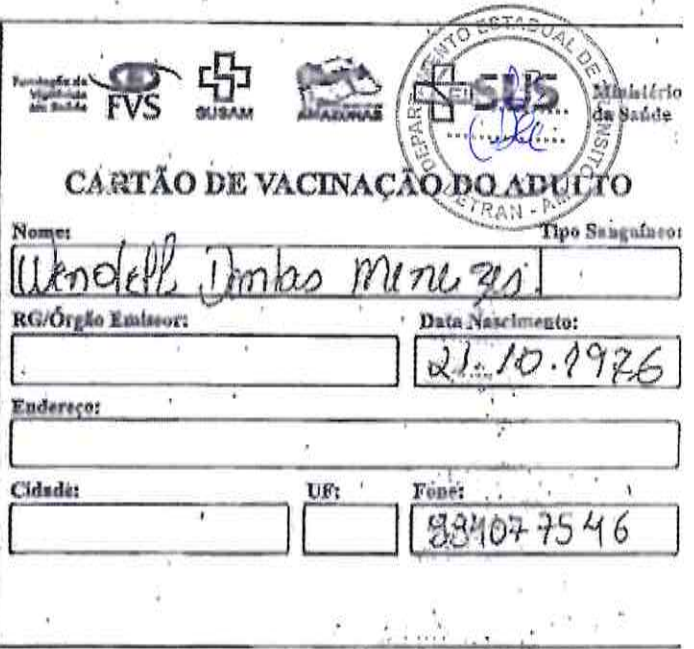 Fundação de
Vigilância
em Saúde
FVS
SUSAM
AMAZONAS
SUS
Ministério
da Saúde
DEPARTAMENTO ESTADUAL DE TRÂNSITO
DETRAN - AM
CARTÃO DE VACINAÇÃO DO ADULTO
Nome:
Tipo Sanguíneo:
Wendell Dantas Menezes
RG/Órgão Emissor:
Data Nascimento:
21.10.1976
Endereço:
Cidade:
UF:
Fone:
994077546